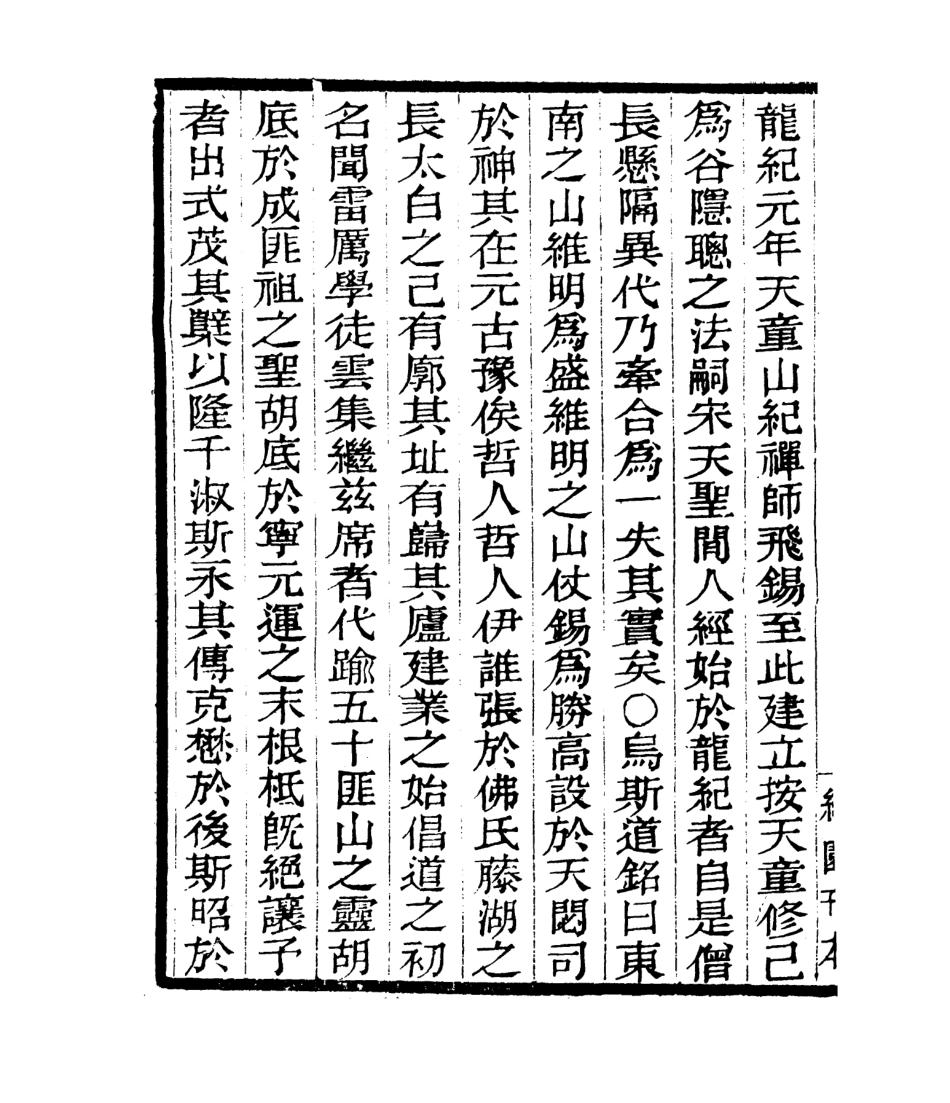 龍紀元年天童山紀禪師飛錫至此建立按天童修己
爲谷隱聰之法嗣宋天聖間人經始於龍紀者自是僧
長懸隔異代乃牽合爲一失其實矣○烏斯道銘曰東
南之山維明爲盛維明之山仗錫爲勝高設於天閟司
於神其在元古豫俟哲人哲人伊誰張於佛氏藤湖之
長太白之己有廓其址有歸其廬建業之始倡道之初
名聞雷厲學徒雲集繼茲席者代踰五十匪山之靈胡
底於成匪祖之聖胡底於寧元運之末根柢既絕讓子
者出式茂其櫱以隆千淑斯永其傳克懋於後斯昭於